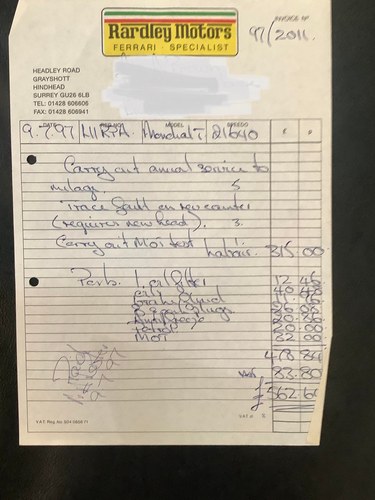 INVOICE Nº
97/2011.
Rardley Motors
FERRARI · SPECIALIST
HEADLEY ROAD
GRAYSHOTT
HINDHEAD
SURREY GU26 6LB
TEL: 01428 606606
FAX: 01428 606941
DATE REG NO. MODEL SPEEDO £ P
9.7.97 Mondial T 21640
Carry out annual service to
milage. 5
Trace fault on rev counter
(requires new head). 3.
Carry out Mot test
Labour. 315 00
Parts. 1. oil filter 12
Oil 40
Brake fluid
8 Spark Plugs 26
Antifreeze 20
Petrol 20 00
MOT 22 00
478
Vat. 83.80
£562.6
Paid
9-7-97
V.A.T. Reg. No.
V.A.T. @ %